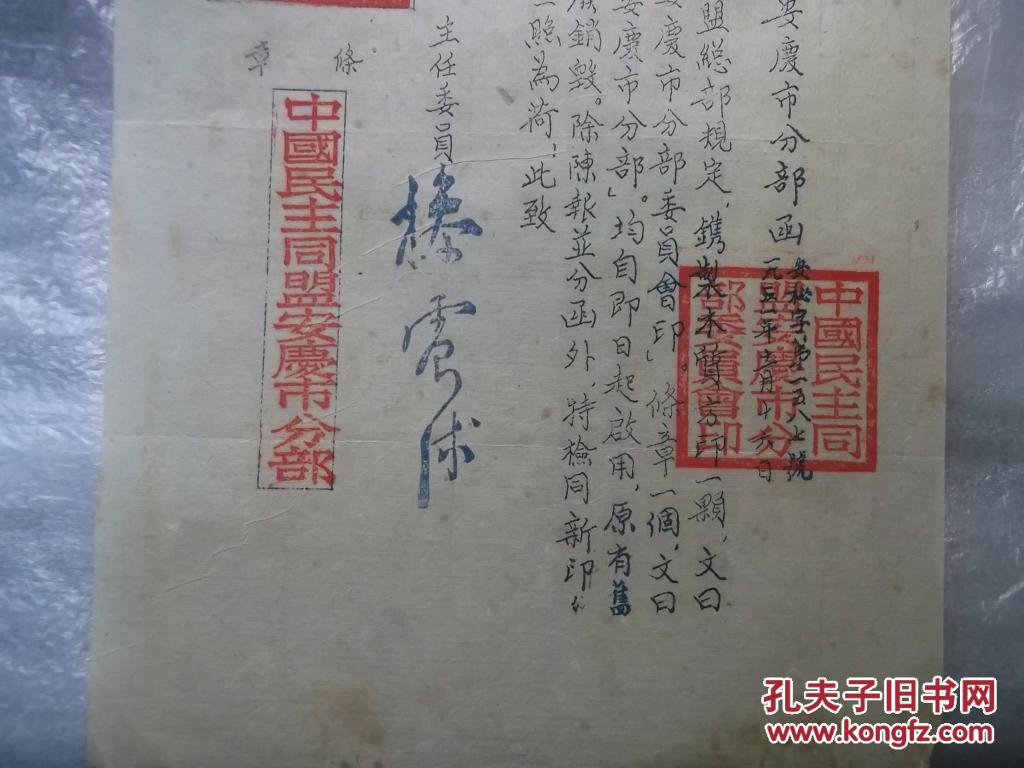 安慶市分部函
安秘字第一五八七號
一九五一年六月十六日
中國民主同
盟安慶市分
部委員會印
盟總部規定，鐫製木質方印一顆，文曰
安慶市分部委員會印」條章一個，文曰
安慶市分部」。均自即日起啟用，原有舊
銷毀。除陳報並分函外，特檢同新印
照為荷，此致
主任委員
條章
中國民主同盟安慶市分部
孔夫子旧书网
www.kongfz.com